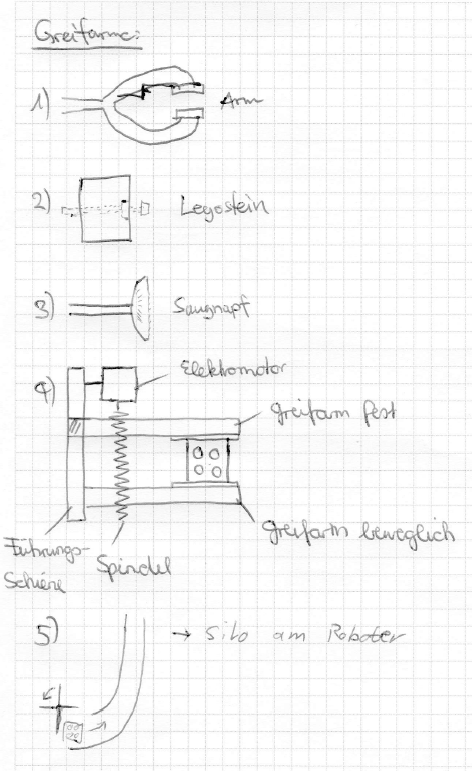 Greifarme:
1) Arm
2) Legostein
3) Saugnapf
4) Elektromotor
Greifarm fest
Greifarm beweglich
Führungs-
Schiene
Spindel
5) → Silo am Roboter